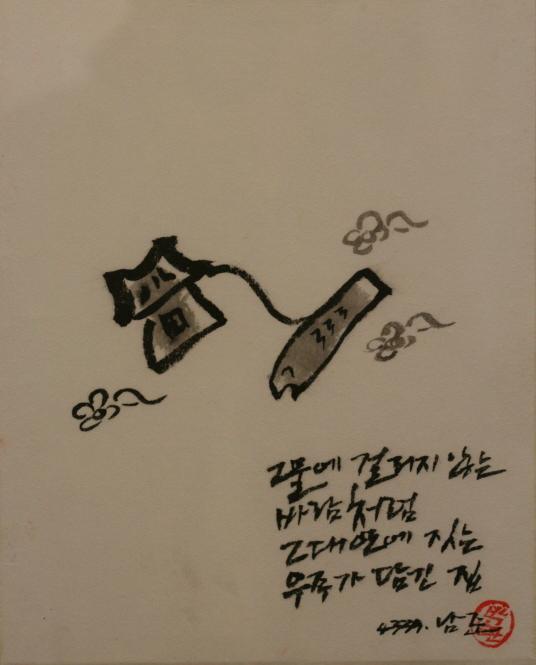 그물에 걸리지 않는
바람처럼
그대 안에 짓는
우주가 담긴 집
4339. 남준